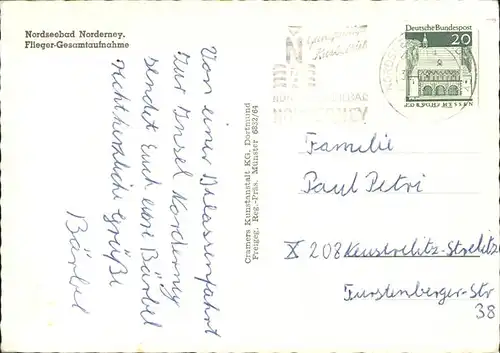 Nordseebad Norderney.
Flieger-Gesamtaufnahme
Von einer Klassenfahrt
zur Insel Norderney
sendet Euch eure Bärbel
recht herzliche Grüße
Bärbel
Cramers Kunstanstalt KG, Dortmund
Freigeg. Reg.-Präs. Münster 6832/64
Deutsche Bundespost
20
LORSCH/HESSEN
Familie
Paul Petri
X 208 Neustrelitz-Strelitz
Fürstenberger-Str
38